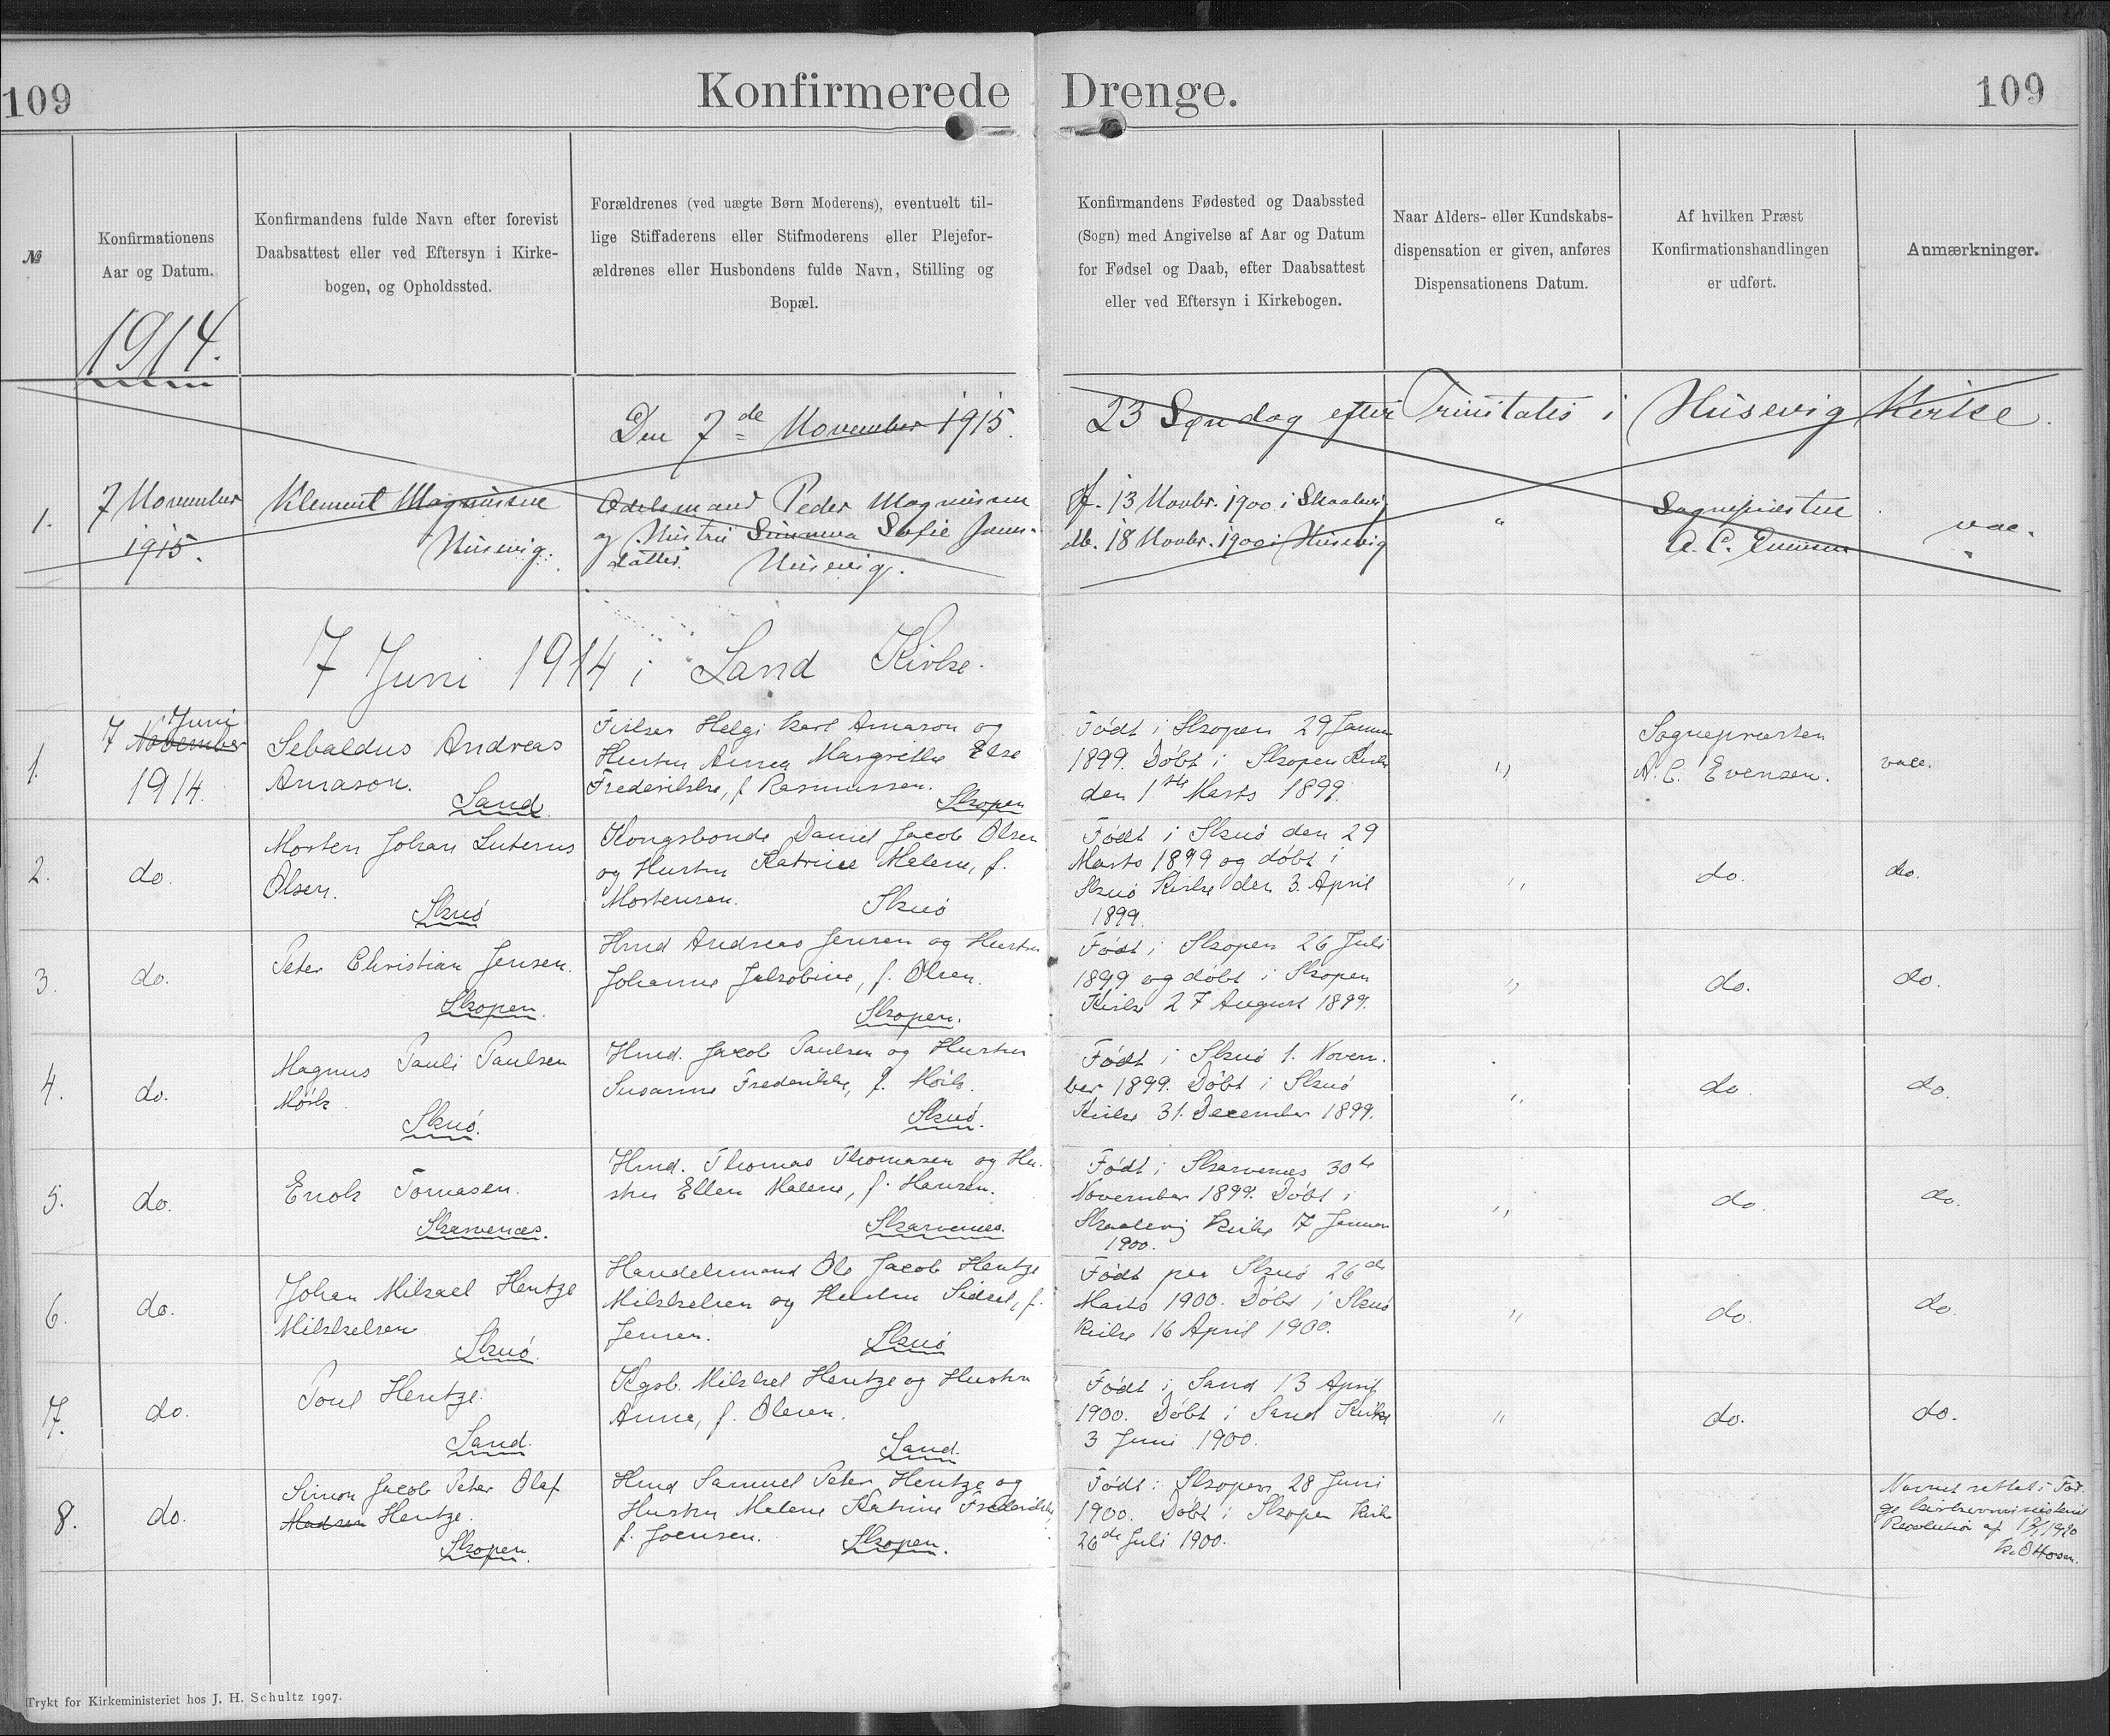 109
Konfirmerede Drenge.
109
№
Konfirmationens
Aar og Datum.
Konfirmandens fulde Navn efter forevist
Daabsattest eller ved Eftersyn i Kirke-
bogen, og Opholdssted.
Forældrenes (ved uægte Børn Moderens), eventuelt til-
lige Stiffaderens eller Stifmoderens eller Plejefor-
ældrenes eller Husbondens fulde Navn, Stilling og
Bopæl.
Konfirmandens Fødested og Daabssted
(Sogn) med Angivelse af Aar og Datum
for Fødsel og Daab, efter Daabsattest
eller ved Eftersyn i Kirkebogen.
Naar Alders- eller Kundskabs-
dispensation er given, anføres
Dispensationens Datum.
Af hvilken Præst
Konfirmationshandlingen
er udført.
Anmærkninger.
1914.
Den 7de November 1915. 23 Søndag efter Trinitatis i Husevig Kirke.
1.
7 November
1915.
Klement Magnussen
Husevig.
Odelsmand Peder Magnussen
og Hustru Sunneva Sofie Joens-
datter. Husevig.
f. 13 Novbr. 1900 i Skaalevig
db. 18 Novbr. 1900 i Husevig
"
Sognepræsten
A. C. Evensen
vac.
7 Juni 1914 i Sand Kirke.
1.
Juni
7 November
1914.
Sebaldus Andreas
Arnason.
Sand
Fisker Helgi Karl Arnason og
Hustru Anna Margrethe Else
Frederikke, f. Rasmussen.
Skopen
Født i Skopen 29 Januar
1899. Døbt i Skopen Kirke
den 1ste Marts 1899.
"
Sognepræsten
A. C. Evensen.
vacc.
2.
do.
Morten Johan Luterus
Olsen.
Skuø
Kongsbonde Daniel Jacob Olsen
og Hustru Katrine Malene, f.
Mortensen.
Skuø
Født i Skuø den 29
Marts 1899 og døbt i
Skuø Kirke den 3. April
1899.
"
do.
do.
3.
do.
Peter Christian Jensen.
Skopen.
Hmd Andreas Jensen og Hustru
Johanne Jakobine, f. Olsen.
Skopen.
Født i Skopen 26 Juli
1899 og døbt i Skopen
Kirke 27 August 1899.
"
do.
do.
4.
do.
Magnus Pauli Paulsen
Mørk
Skuø.
Hmd. Jacob Paulsen og Hustru
Susanne Frederikke, f. Mørk.
Skuø.
Født i Skuø 1. Novem-
ber 1899. Døbt i Skuø
Kirke 31. December 1899.
"
do
do.
5.
do.
Enok Tomasen.
Skarvenes.
Hmd. Thomas Thomasen og Hu-
stru Ellen Malene, f. Hansen.
Skarvenes.
Født i Skarvenes 30te
November 1899. Døbt i
Skaalevig Kirke 17 Januar
1900.
"
do.
do.
6.
do.
Johan Mikael Hentze
Mikkelsen
Skuø.
Handelsmand Ole Jacob Hentze
Mikkelsen og Hustru Sidsel, f.
Jensen.
Skuø
Født paa Skuø 26de
Marts 1900. Døbt i Skuø
Kirke 16 April 1900.
"
do.
do.
7.
do.
Poul Hentze.
Sand.
Kgsb. Mikkel Hentze og Hustru
Anna, f. Olsen.
Sand.
Født i Sand 13 April
1900. Døbt i Sand Kirke
3 Juni 1900.
"
do.
do.
8.
do.
Simon Jacob Peter Olaf
Madsen Hentze.
Skopen.
Hmd Samuel Peter Hentze og
Hustru Malene Katrine Frederikke
f. Joensen.
Skopen.
Født i Skopen 28 Juni
1900. Døbt i Skopen Kirke
26de Juli 1900.
Navnet rettet i Føl-
ge Kirkeministeriel
Resolution af
Trykt for Kirkeministeriet hos J. H. Schultz 1907.